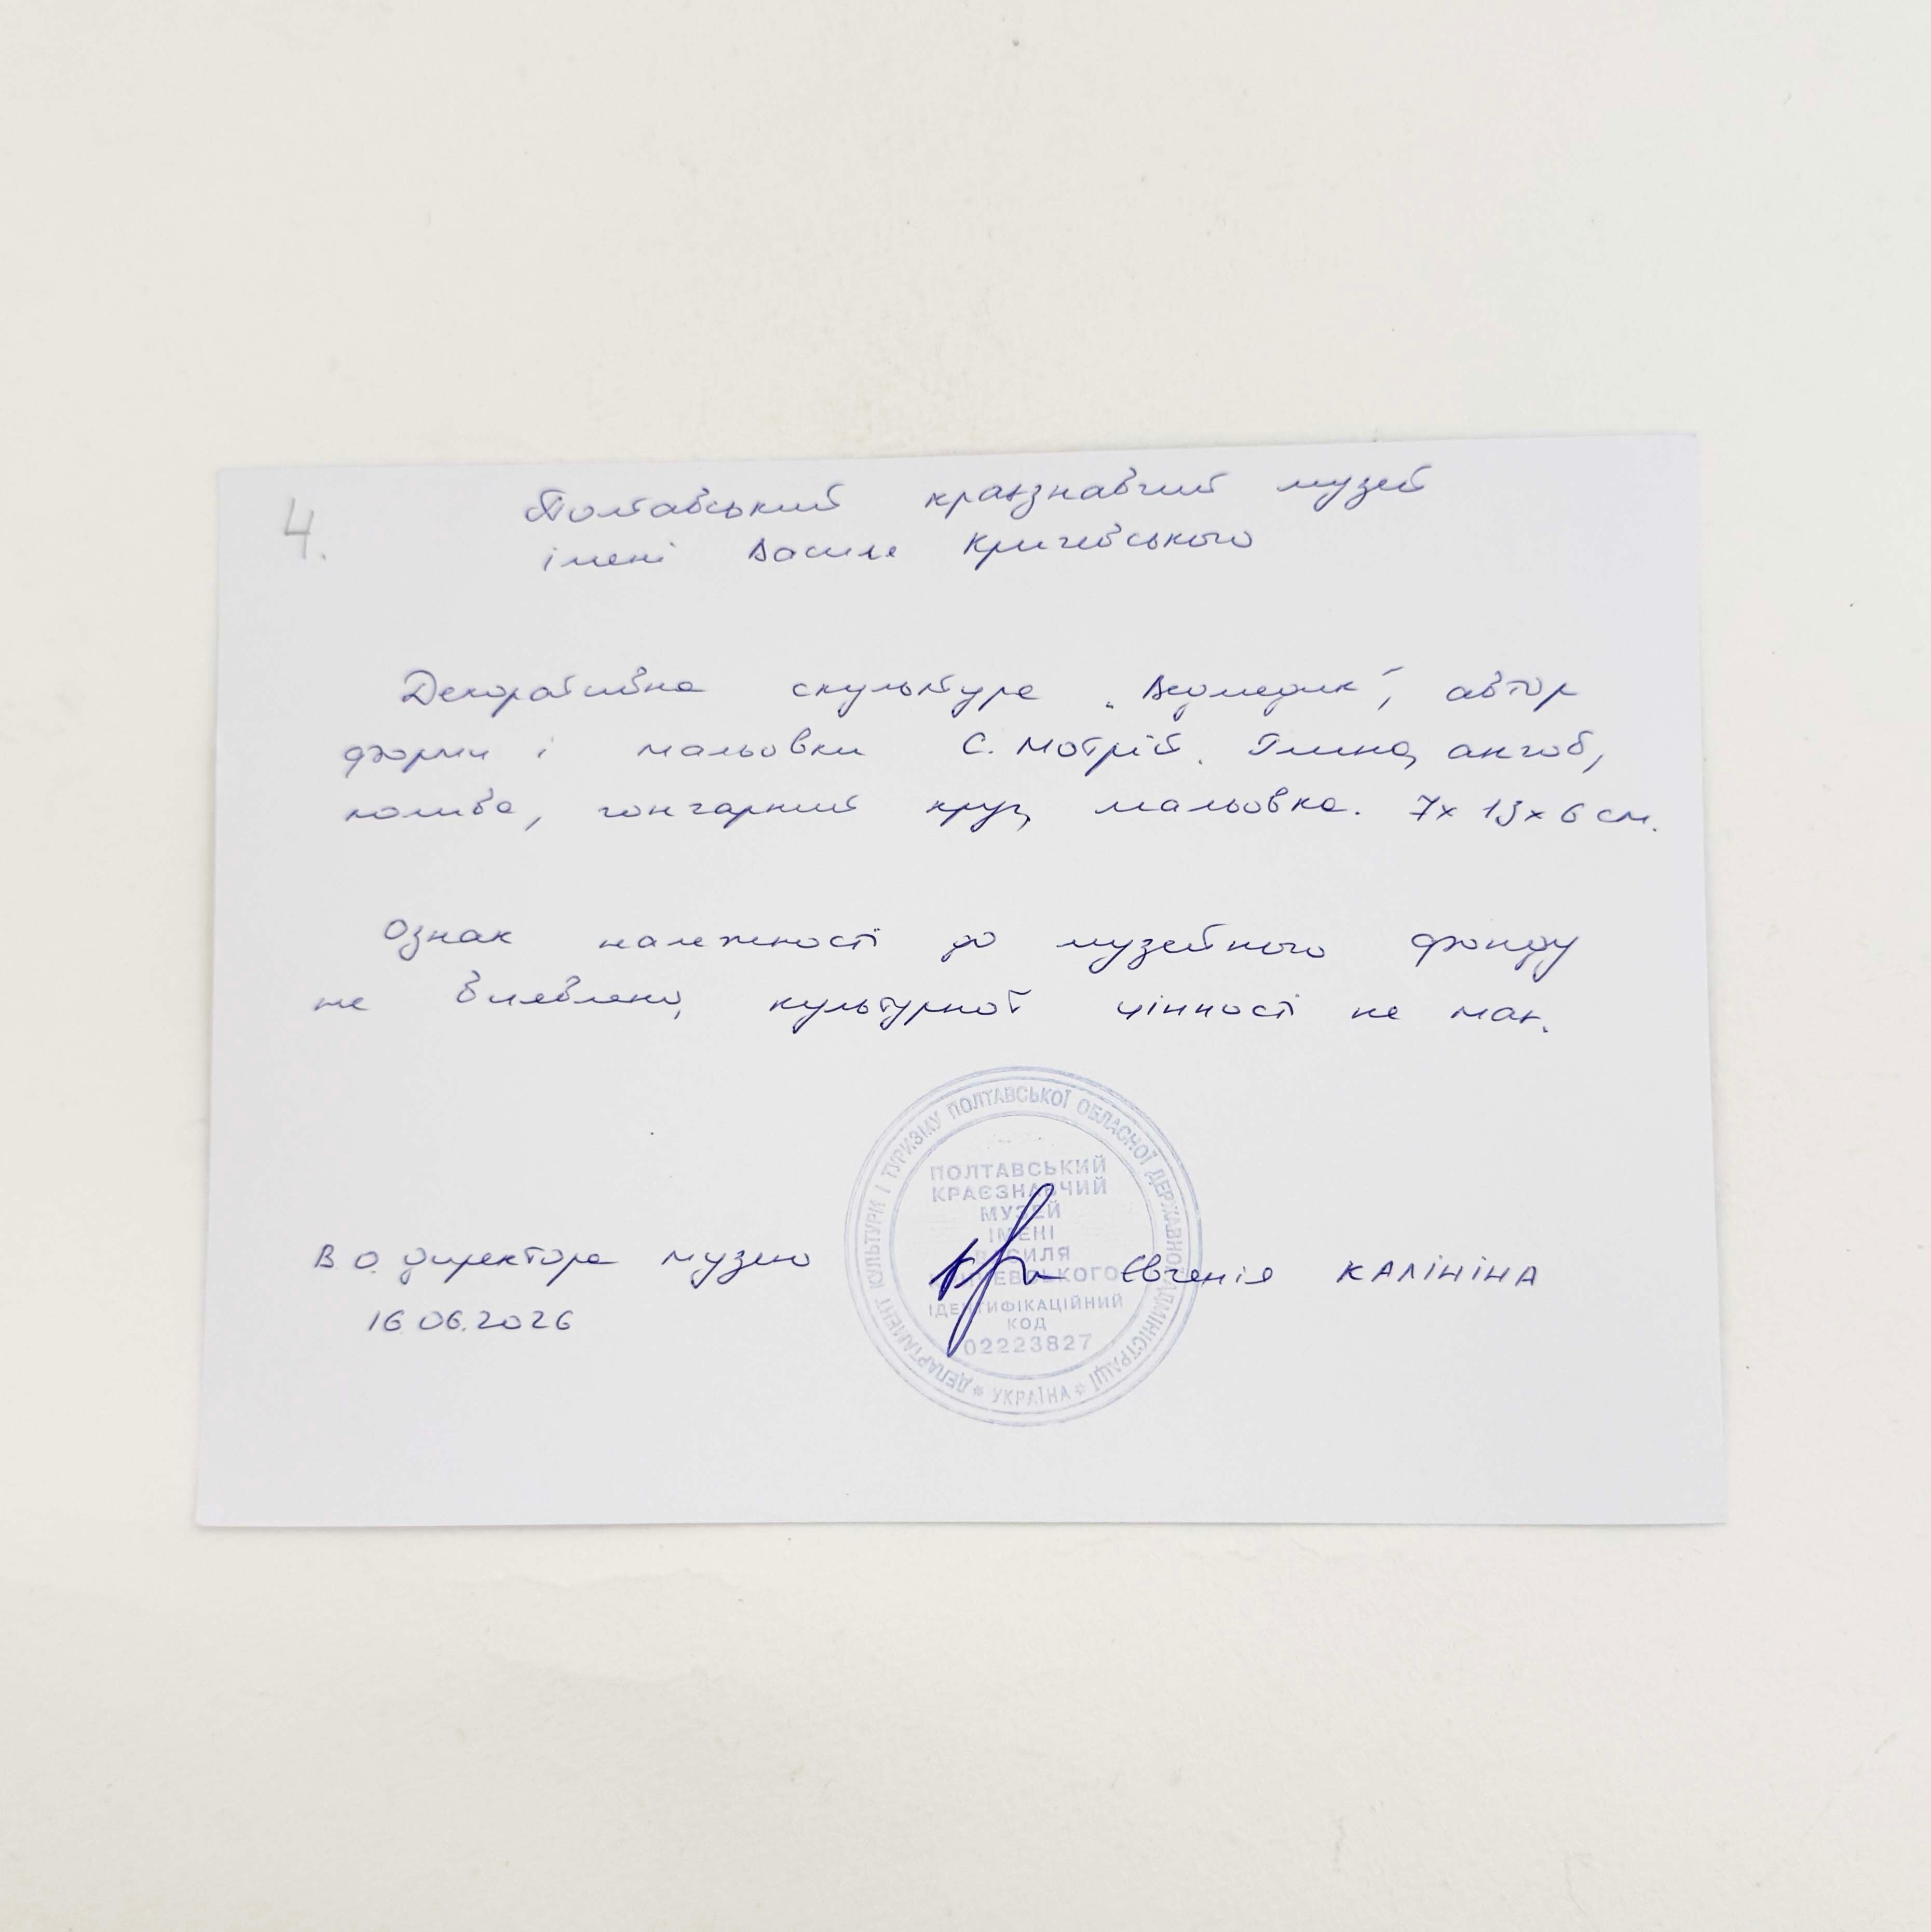 4.
Полтавський краєзнавчий музей
імені Василя Кричевського
Декоративна скульптура „Ведмедик", автор
форми і мальовки С. Мотрій. Глина, ангоб,
полива, гончарний круг, мальовка. 7х13х6 см.
Ознак належності до музейного фонду
не виявлено, культурної цінності не має.
ДЕПАРТАМЕНТ КУЛЬТУРИ І ТУРИЗМУ ПОЛТАВСЬКОЇ ОБЛАСНОЇ ДЕРЖАВНОЇ АДМІНІСТРАЦІЇ * УКРАЇНА *
ПОЛТАВСЬКИЙ
КРАЄЗНАВЧИЙ
МУЗЕЙ
ІМЕНІ
ВАСИЛЯ
КРИЧЕВСЬКОГО
ІДЕНТИФІКАЦІЙНИЙ
КОД
02223827
В.О. директора музею Євгенія КАЛІНІНА
16.06.2026